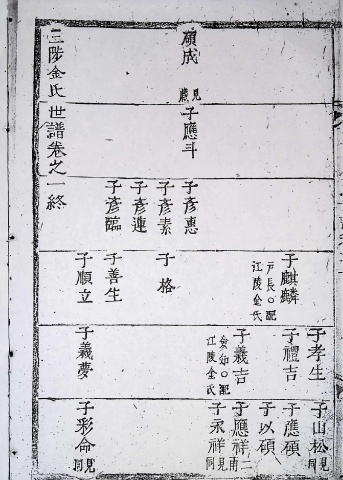 碩成 見
子應斗
子彥惠
子彥素
子彥連
子彥臨
子麒麟 戸長○配江陵金氏
子格
子善生
子順立
子孝生
子禮吉
子義吉 僉知○配江陵金氏
子義夢
子山松 見同
子應碩
子以碩
子應祥 二南
子永祥 見同
子彩命 見同
三陟金氏世譜卷之一終